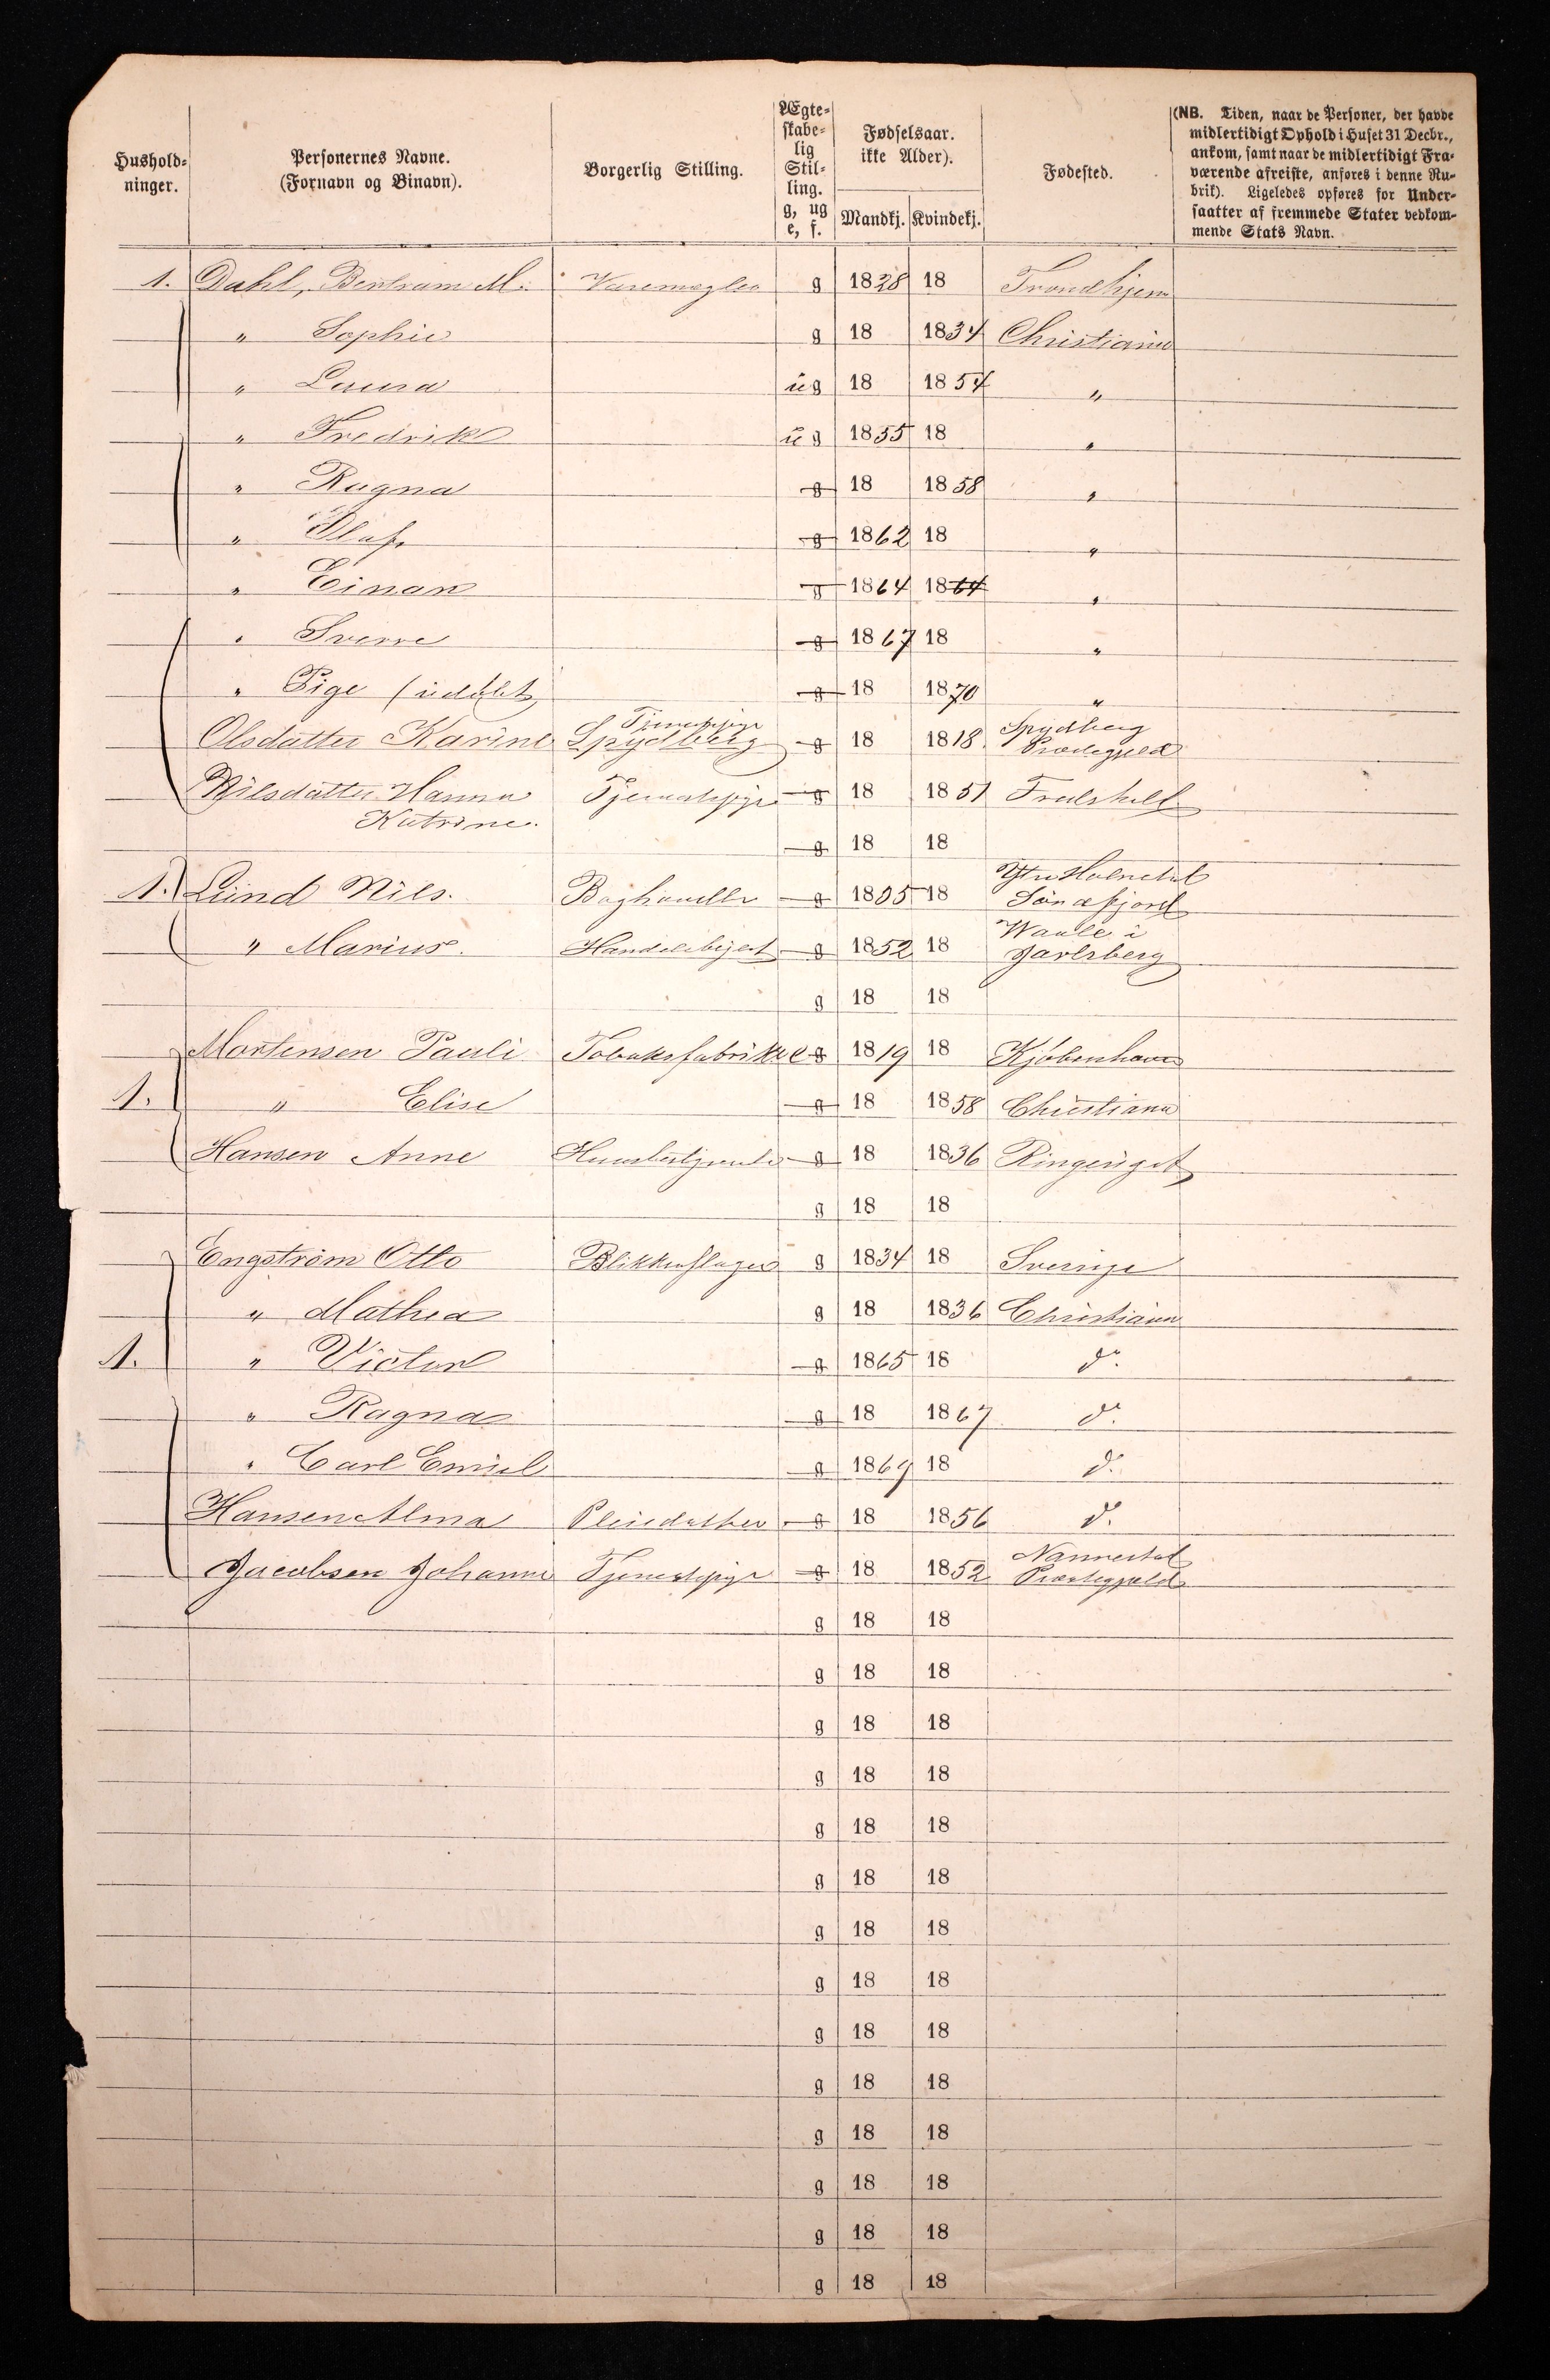 Hushold-
ninger.
Personernes Navne.
(Fornavn og Binavn).
Borgerlig Stilling.
Ægte-
skabe-
lig
Stil-
ling.
g, ug
e, f.
Fødselsaar.
ikke Alder).
Mandkj. Kvindekj.
Fødested.
(NB. Tiden, naar de Personer, der havde
midlertidigt Ophold i Huset 31 Decbr.,
ankom, samt naar de midlertidigt Fra-
værende afreiste, anføres i denne Ru-
brik). Ligeledes opføres for Under-
saatter af fremmede Stater vedkom-
mende Stats Navn.
1. Dahl, Bertram M. Varemægler g 1838 18 Trondhjem
" Sophie g 18 1834 Christiania
" Laura ug 18 1854 "
" Fredrik ug 1855 18 "
" Ragna g 18 1858 "
" Olaf g 1862 18 "
" Einar g 1864 1864 "
" Sverre g 1867 18 "
" Pige (udøbt) g 18 1870 "
Olsdatter Karine Tjenestepige Spydberg g 18 1818 Spydberg Præstegjeld
Nilsdatter Hanna Tjenestepige g 18 1851
Katrine.
g 18 18
1. Lund Nils. g 1805 18
" Marius. g 1852 18 Waale i Jarlsberg
g 18 18
Mortensen Pauli Tobaksfabrikk e g 1819 18 Kjøbenhavn
1. " Elise g 18 1858 Christiania
Hansen Anne g 18 1836 Ringeriget
g 18 18
Engström Otto Blikkenslager g 1834 18 Sverrige
" Mathea g 18 1836 Christiania
1. " Victor g 1865 18 do.
" Ragna g 18 1867 do.
" Carl Emiel g 1869 18 do.
Hansen Alma Pleiedatter g 18 1856 do.
Jacobsen Johanne Tjenestepige g 18 1852 Nannestad Præstegjæld
g 18 18
g 18 18
g 18 18
g 18 18
g 18 18
g 18 18
g 18 18
g 18 18
g 18 18
g 18 18
g 18 18
g 18 18
g 18 18
g 18 18